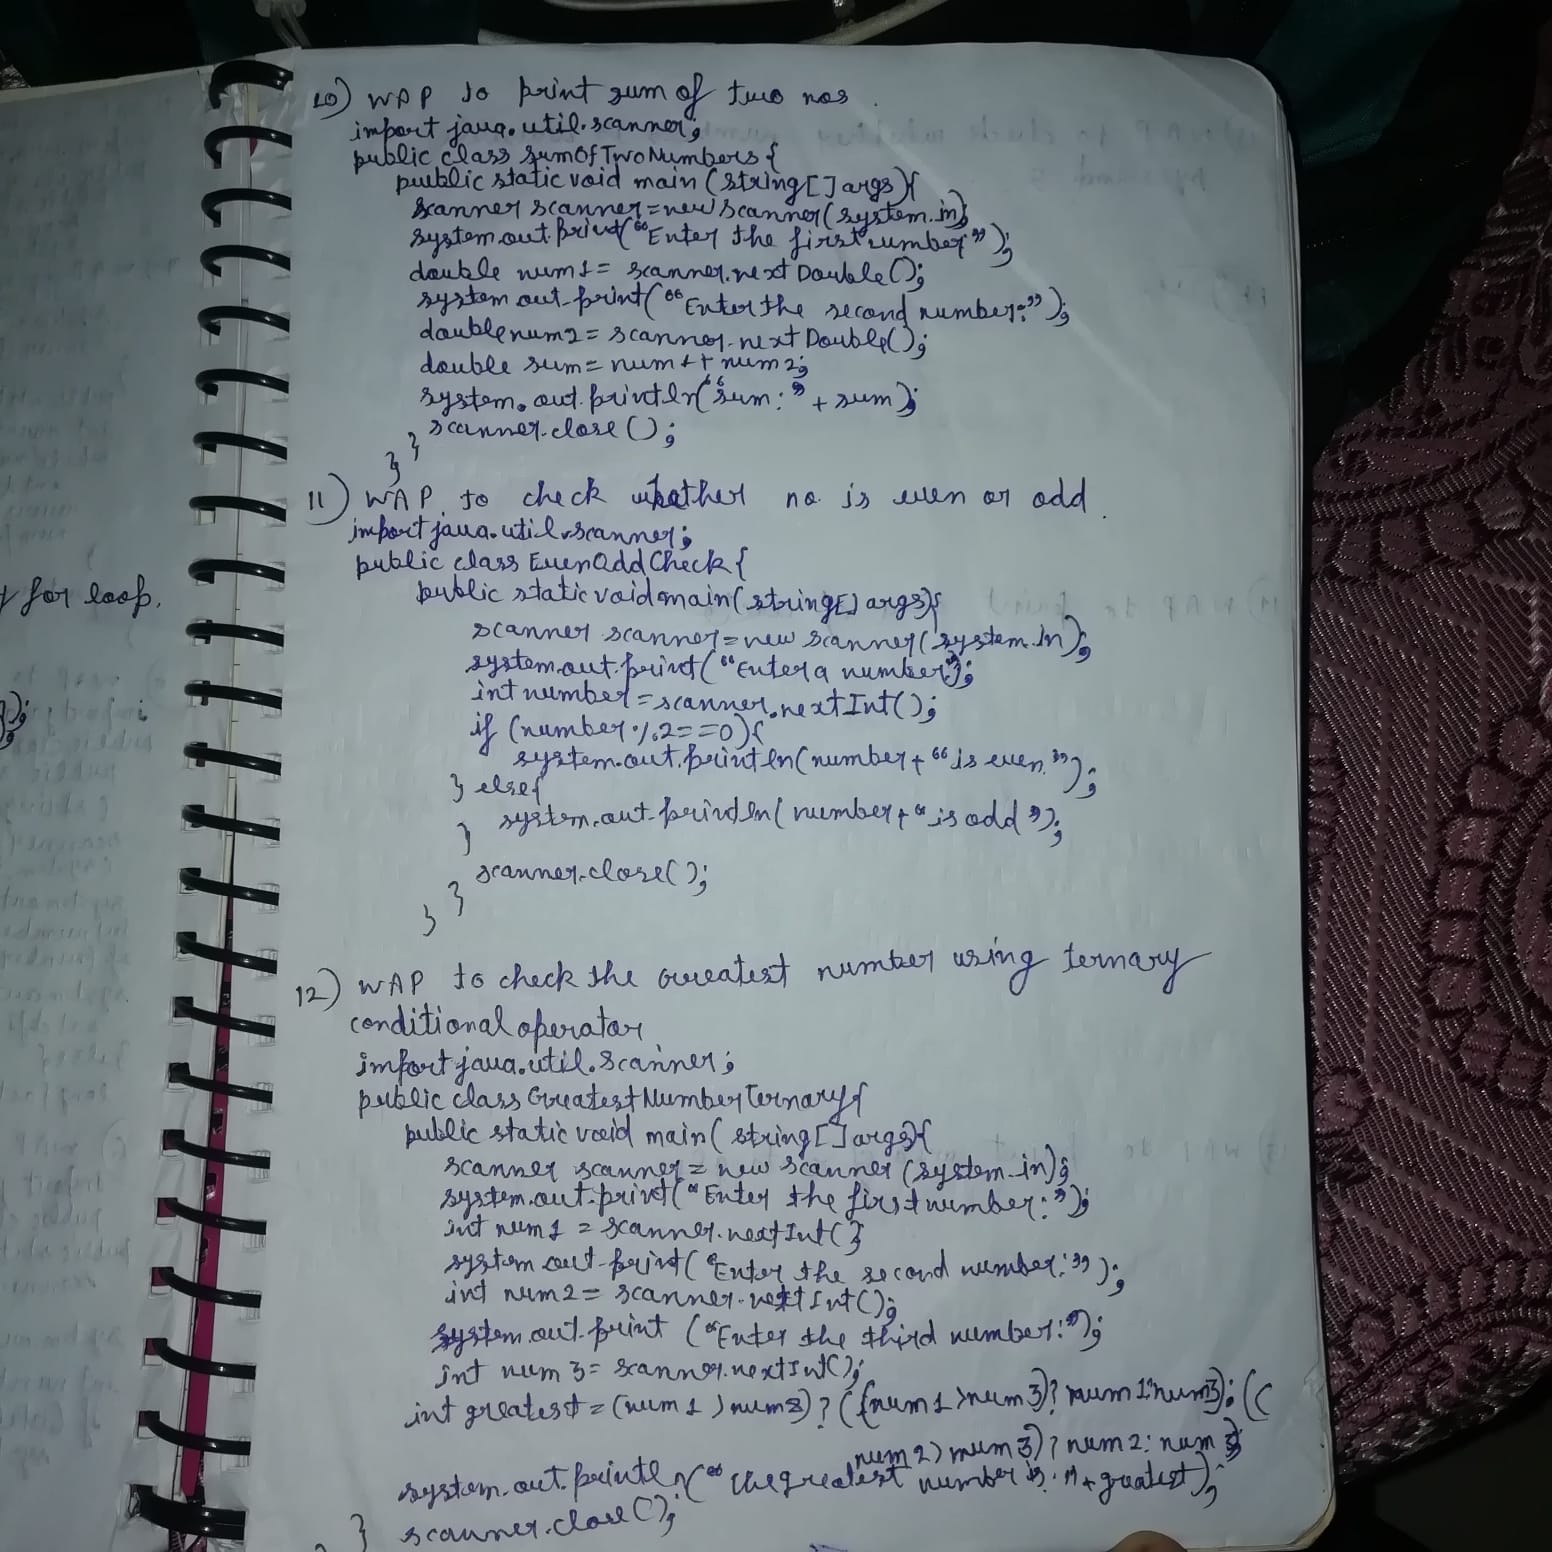 y for loop.
);
10) WAP to print sum of two nos.
import java.util.scanner;
public class sumOfTwoNumbers {
public static void main (string [ ] args){
scanner scanner = new scanner (system.in);
system.out.print("Enter the first number");
double num1 = scanner.next Double();
system.out.print("Enter the second number:");
double num2 = scanner.next Double();
double sum = num1 + num2;
system.out.println("sum: " + sum);
scanner.close ();
}
}
11) WAP to check whether no is even or odd.
import java.util.scanner;
public class EvenOddCheck {
public static void main (string[] args){
scanner scanner = new scanner (system.in);
system.out.print("Enter a number");
int number = scanner.nextInt();
if (number %2==0){
system.out.println(number + "is even.");
} else{
system.out.println( number + "is odd");
}
scanner.close();
}
}
12) WAP to check the Greatest number using ternary
conditional operator
import java.util.scanner;
public class GreatestNumberTernary{
public static void main( string [ ] args){
scanner scanner = new scanner (system.in);
system.out.print("Enter the first number:");
int num1 = scanner.nextInt()
system.out.print("Enter the second number:");
int num2 = scanner.nextInt();
system.out.print ("Enter the third number:");
int num3 = scanner.nextInt();
int greatest = (num1 > num2) ? ((num1 > num3)? num1:num3): ((
num2 > num3) ? num2: num3);
system.out.println("the greatest number is: "+ greatest);
} scanner.close();